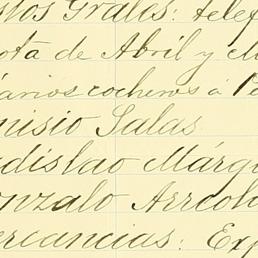 stos Grales: telef
ota de Abril y M
arios cocheros á Pa
nisio Salas
adislao Márqu
onzalo Arreol
ercancias: Exp